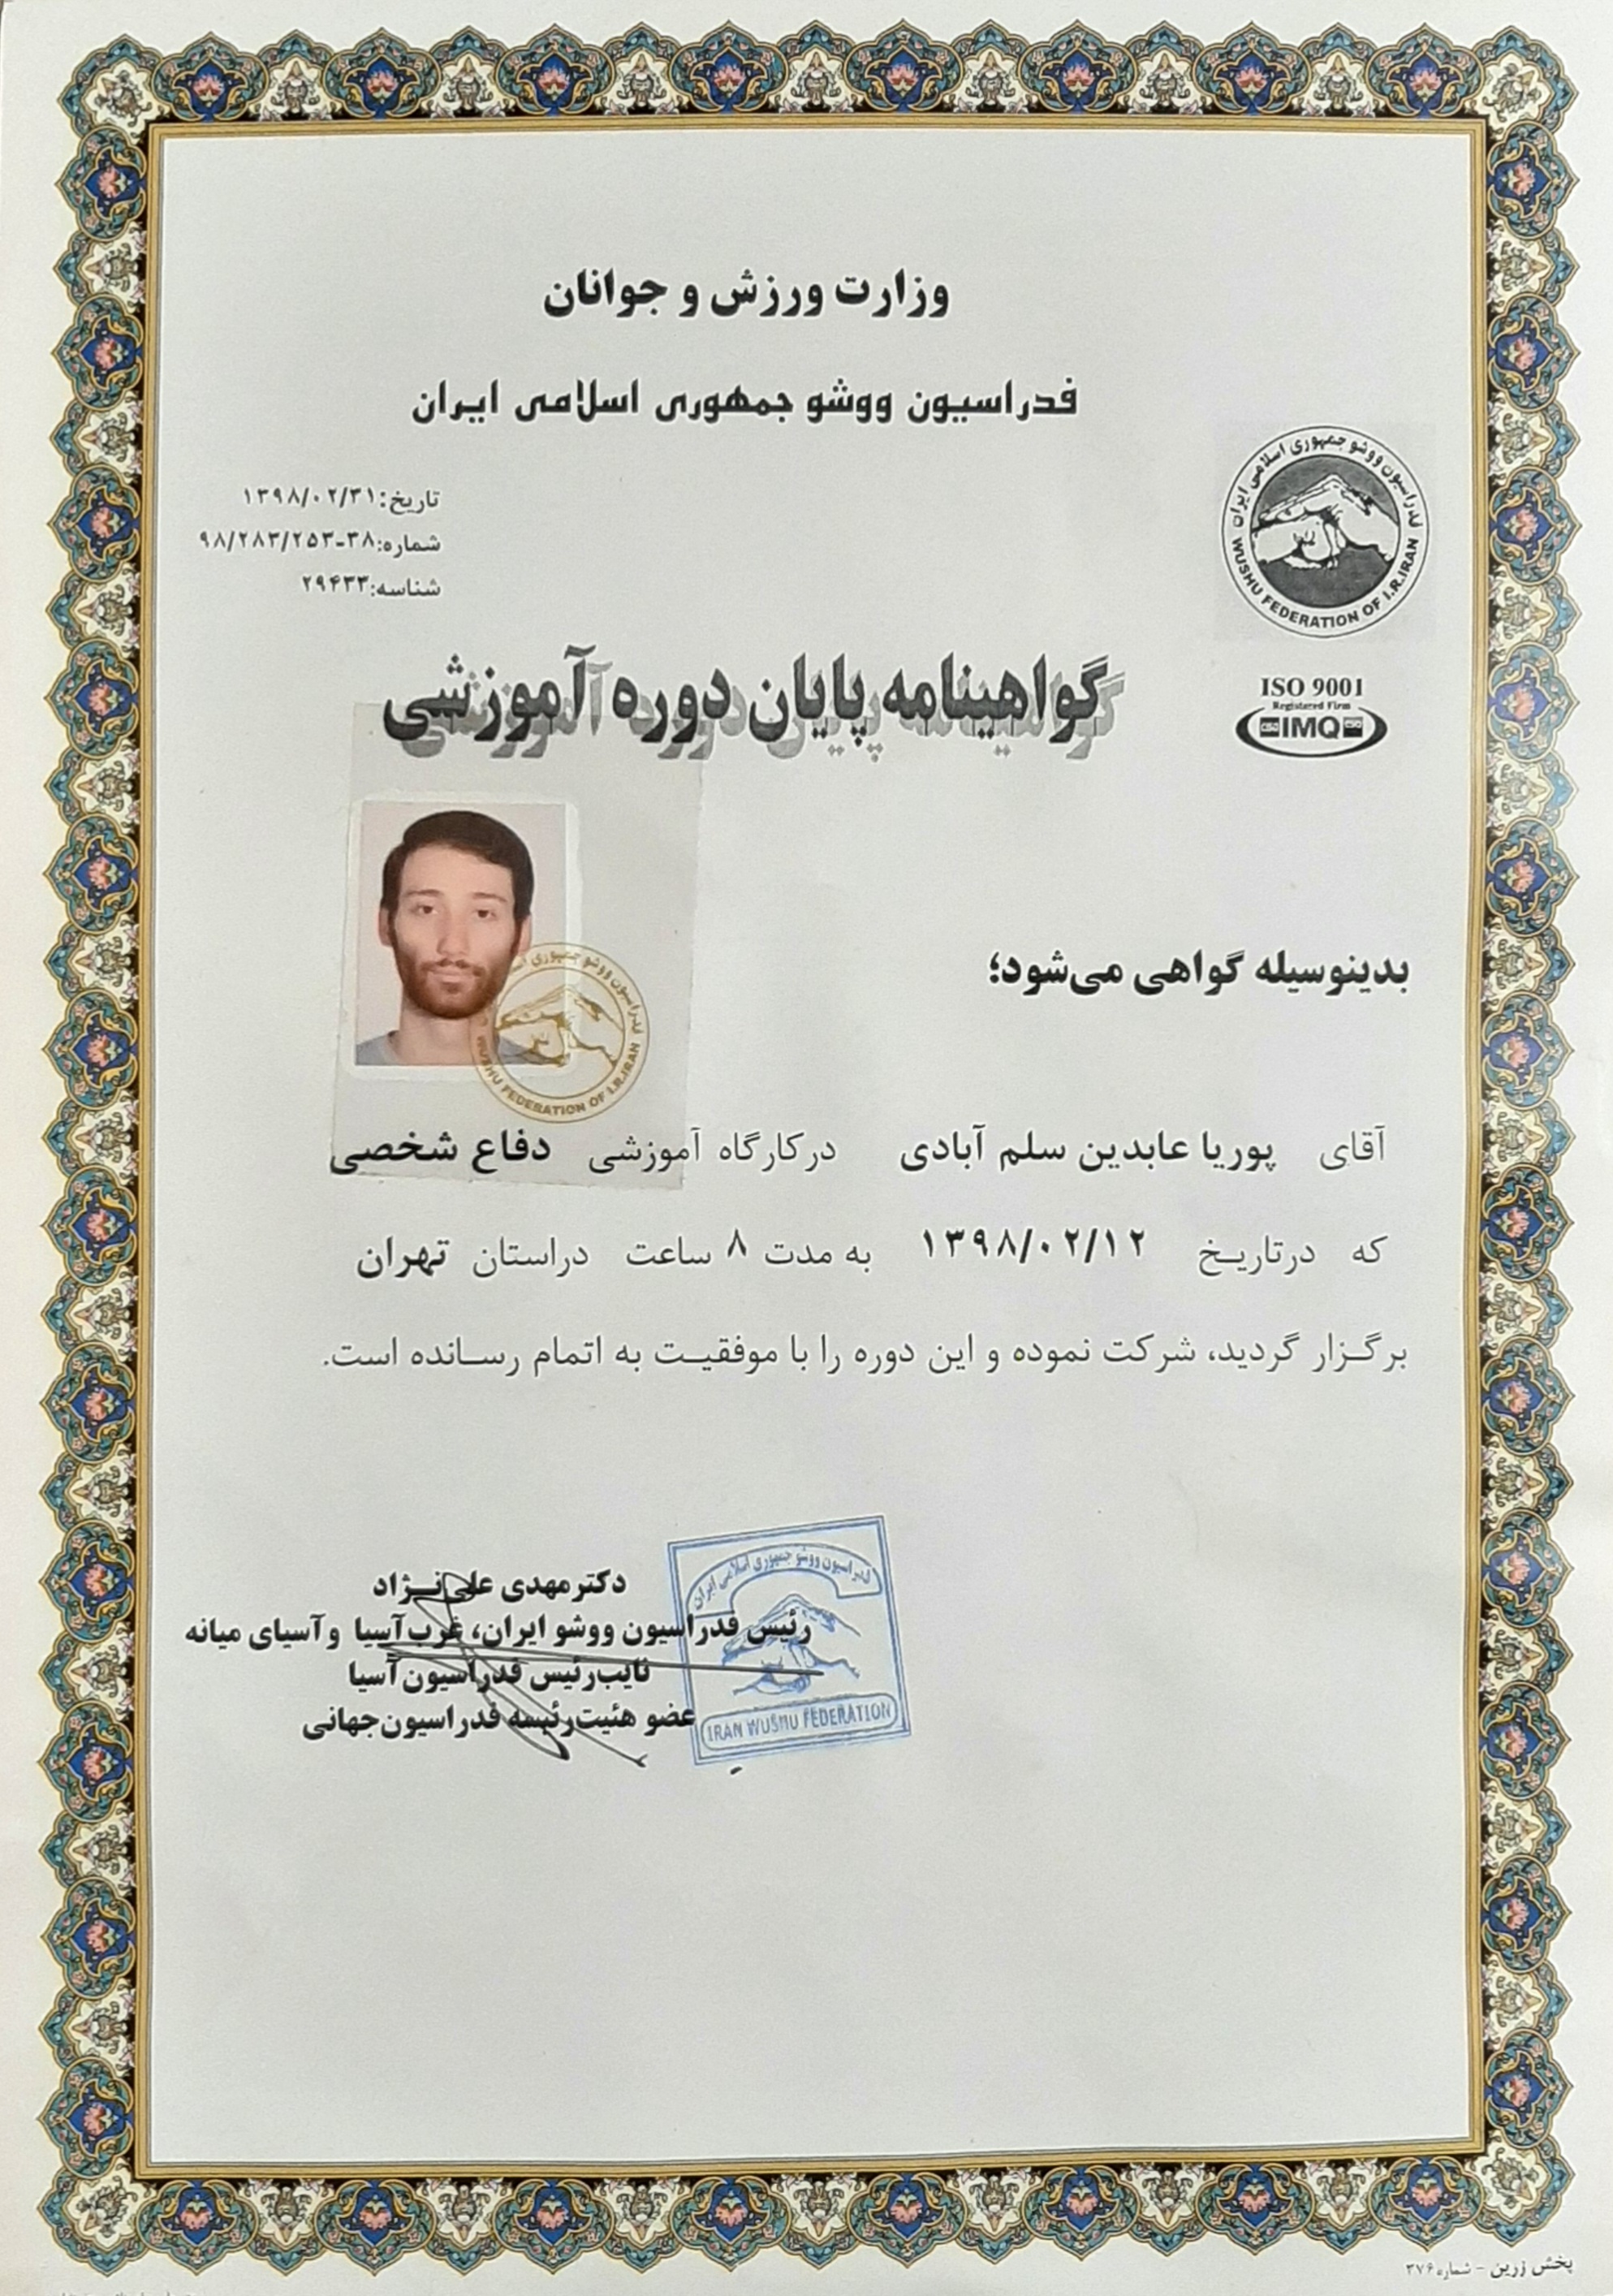 وزارت ورزش و جوانان
فدراسیون ووشو جمهوری اسلامی ایران
تاریخ:۱۳۹۸/۰۲/۳۱
شماره:۳۸-۹۸/۲۸۳/۲۵۳
شناسه:۲۹۴۳۳
فدراسیون ووشو جمهوری اسلامی ایران
WUSHU FEDERATION OF I.R.IRAN
گواهینامه پایان دوره آموزشی
ISO 9001
Registered Firm
CSQ IMQ CSQ
بدینوسیله گواهی می‌شود؛
فدراسیون ووشو جمهوری
WUSHU FEDERATION OF I.R.IRAN
آقای پوریا عابدین سلم آبادی درکارگاه آموزشی دفاع شخصی
که درتاریخ ۱۳۹۸/۰۲/۱۲ به مدت ۸ ساعت دراستان تهران
برگزار گردید، شرکت نموده و این دوره را با موفقیت به اتمام رسانده است.
دکترمهدی علی‌نژاد
رئیس فدراسیون ووشو ایران، غرب‌آسیا وآسیای میانه
نایب‌رئیس فدراسیون‌آسیا
عضو هئیت‌رئیسه فدراسیون‌جهانی
فدراسیون ووشو جمهوری اسلامی ایران
IRAN WUSHU FEDERATION
پخش زرین - شماره ۳۷۶